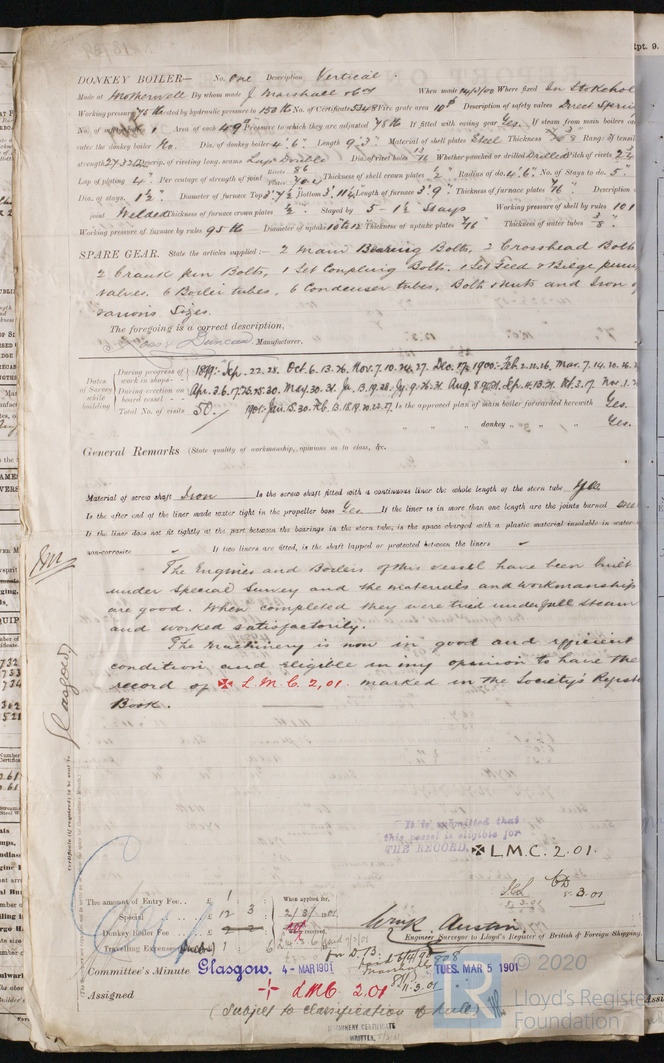 DONKEY BOILER— No. One Description Vertical
Made at Motherwell By whom made J. Marshall & Co When made Where fixed In Stokehol
Working pressure 75 lb tested by hydraulic pressure to 150 lb No. of Certificate 5348 Fire grate area Description of safety valves Direct Sprin
No. of safety valves Area of each 4.9" Pressure to which they are adjusted 78 lb If fitted with easing gear Yes. If steam from main boilers ca
enter the donkey boiler No. Dia. of donkey boiler 4'.6" Length 9'.3" Material of shell plates Steel Thickness Range of tensil
strength 27/32 Descrip. of riveting long. seams Lap Double Dia. of rivet holes 13/16 Whether punched or drilled Drilled Pitch of rivets
Lap of plating 4" Per centage of strength of joint Rivets 86 Plates Thickness of shell crown plates 1/2" Radius of do. 4'.6" No. of Stays to do. 5
Dia. of stays. 1 1/2" Diameter of furnace Top 3'.7 1/2" Bottom 3'.11 1/4" Length of furnace 3'.9" Thickness of furnace plates 7/16 Description o
joint Welded Thickness of furnace crown plates 1/2" Stayed by 5 - 1 1/2 Stays Working pressure of shell by rules 101
Working pressure of furnace by rules 95 lb Diameter of uptake 10 to 12 Thickness of uptake plates 7/16" Thickness of water tubes 3/8"
SPARE GEAR. State the articles supplied:— 2 Main Bearing Bolts, 2 Crosshead Bolt
2 Crank pin Bolts, 1 Set Coupling Bolts. 1 Set Feed & Bilge pump
valves. 6 Boiler tubes, 6 Condenser tubes, Bolts & Nuts and Iron of
various Sizes.
The foregoing is a correct description,
Ross & Duncan Manufacturer.
Dates of Survey while building
During progress of work in shops- - 1899:- Sep. 22. 28. Oct. 6. 13. 26. Nov. 7. 10. 24. 27. Dec. 17. 1900:- Feb. 2. 11. 16. Mar. 7. 14. 20. 26.
During erection on board vessel - - Apr. 3. 6. 17. 25. 30. May. 30. 31. Ju. 13. 19. 28. Jy. 9. 26. 31. Aug. 8. Sep. 11. 13. 21. Oct. 3. 17. Nov. 1.
Total No. of visits 50 1901:- Jan. 15. 30. Feb. 13. 18. 19. 20. 22. 27. Is the approved plan of main boiler forwarded herewith Yes.
" " " donkey " " " Yes.
General Remarks (State quality of workmanship, opinions as to class, &c.
Material of screw shaft Iron Is the screw shaft fitted with a continuous liner the whole length of the stern tube Yes
Is the after end of the liner made water tight in the propeller boss Yes If the liner is in more than one length are the joints burned
If the liner does not fit tightly at the part between the bearings in the stern tube, is the space charged with a plastic material insoluble in water
non-corrosive " If two liners are fitted, is the shaft lapped or protected between the liners "
The Engines and Boilers of this vessel have been built
under Special Survey and the materials and workmanship
are good. When completed they were tried under full steam
and worked satisfactorily.
The Machinery is now in good and efficient
condition, and eligible in my opinion to have the
record of ✠ L.M.C. 2,01. marked in the Society's Regist
Book.
Glasgow
Certificate (if required) to be sent to
It is submitted that
this vessel is eligible for
THE RECORD. ✠ L.M.C. 2.01.
The amount of Entry Fee . . £ 1 : :
Special . . £ 12 : 3 :
Donkey Boiler Fee . . £
Travelling Expenses £ 1 : 6
When applied for, 2/3/1901
When received,
Wm R Austin
Engineer Surveyor to Lloyd's Register of British & Foreign Shipping.
Committee's Minute Glasgow. 4 - MAR 1901 TUES. MAR 5 1901
Assigned + LMC 2.01
(Subject to classification of Hull)
MACHINERY CERTIFICATE
WRITTEN.
Rpt. 9.
© 2020
Lloyd's Registe
Foundation